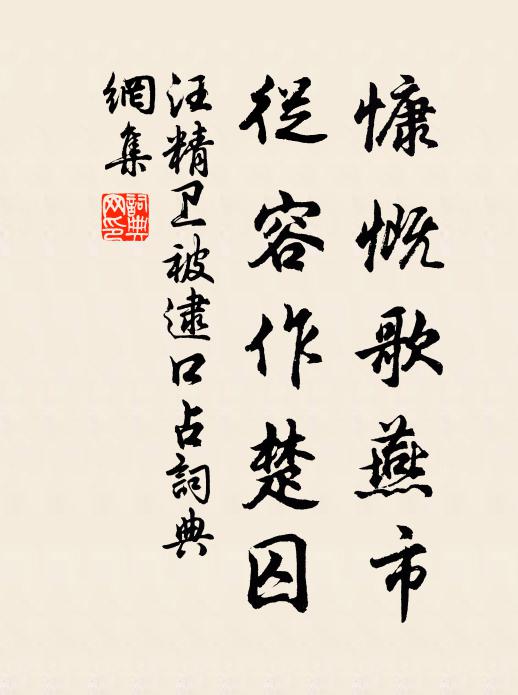 慷慨歌燕市
從容作楚囚
汪精卫被逮口占詞典
網集
詞典
网印